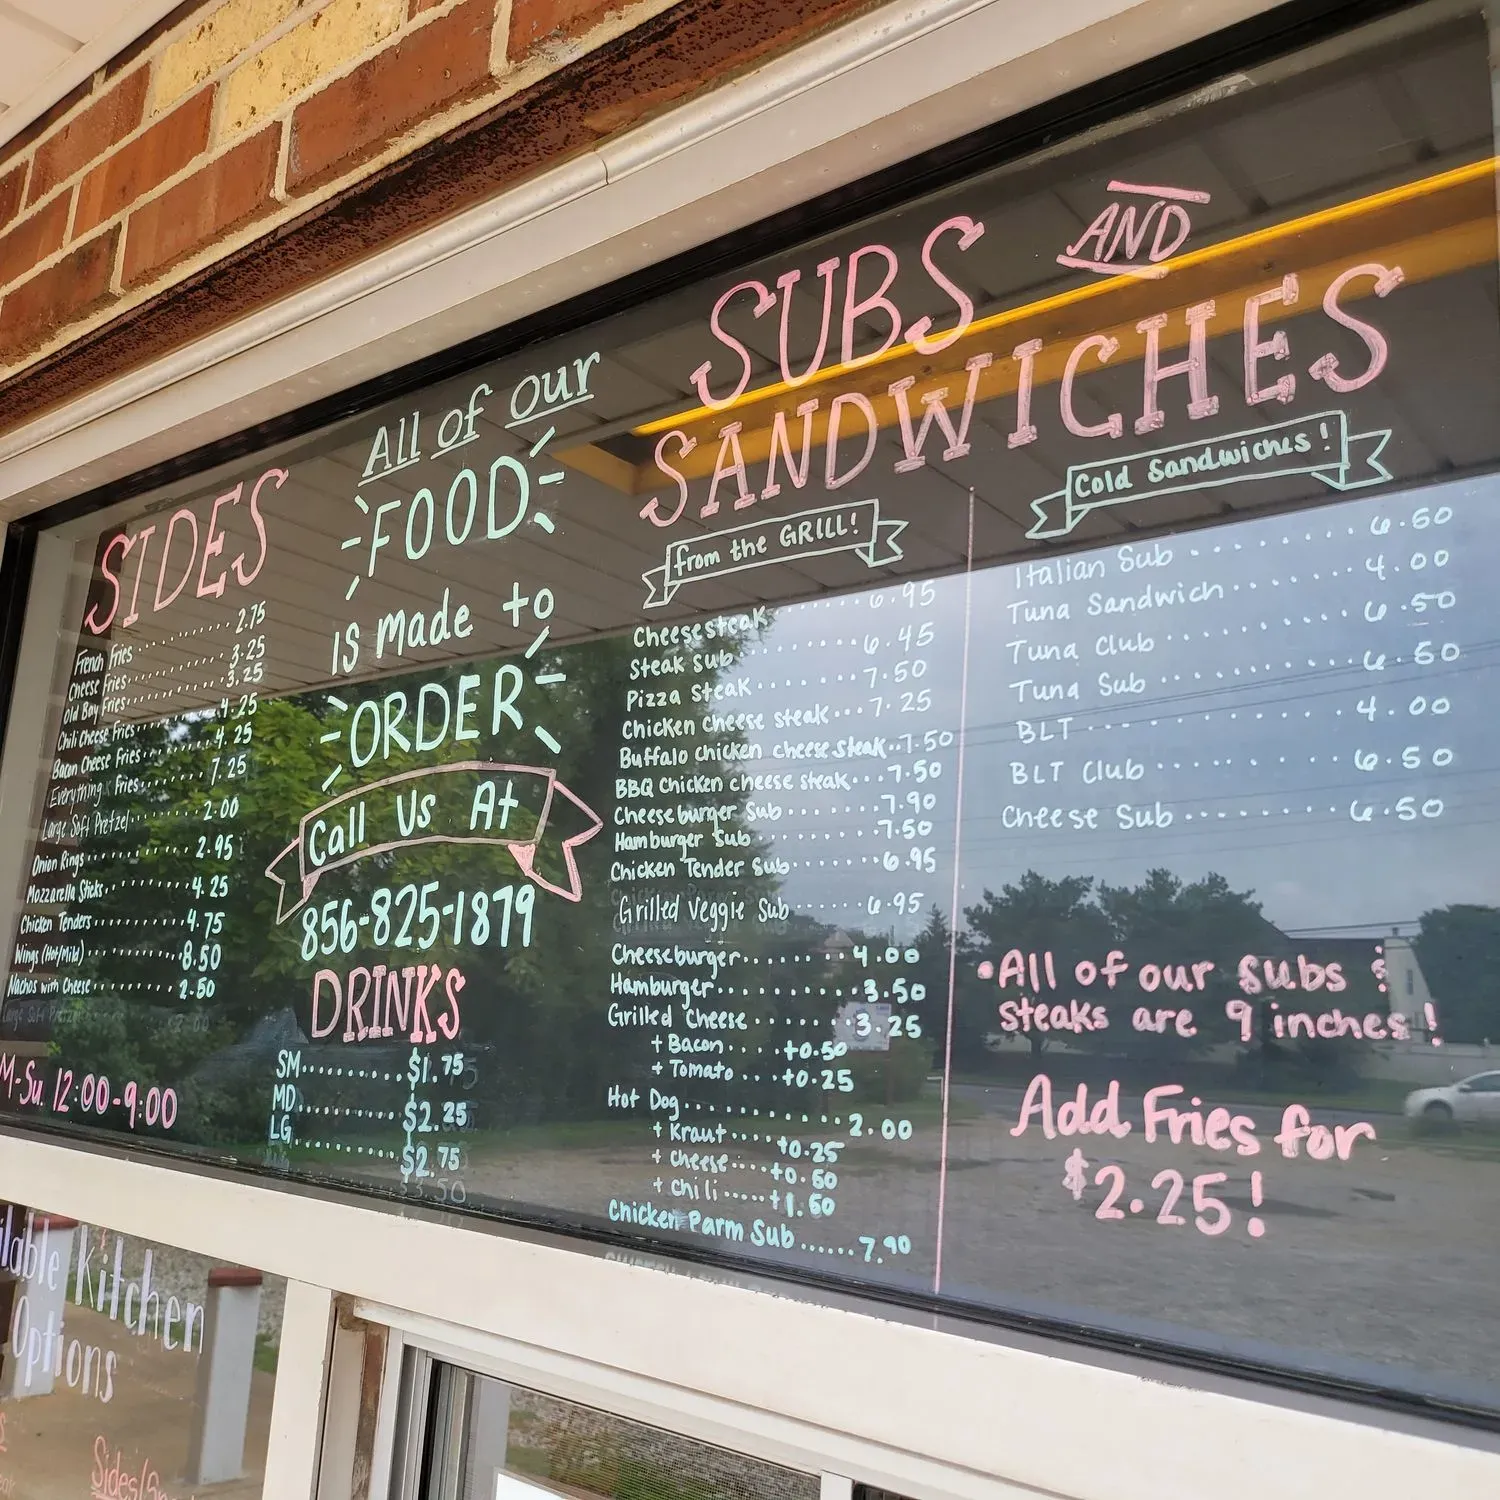 SIDES
French Fries 2.75
Cheese Fries 3.25
Old Bay Fries 3.25
Chili Cheese Fries 4.25
Bacon Cheese Fries 4.25
Everything Fries 7.25
Large Soft Pretzel 2.00
Onion Rings 2.95
Mozzarella Sticks 4.25
Chicken Tenders 4.75
Wings (Hot/Mild) 8.50
Nachos with Cheese 2.50
M-Su. 12:00-9:00
All of our
FOOD
is made to
ORDER
Call Us At
856-825-1879
DRINKS
SM $1.75
MD $2.25
LG $2.75
SUBS AND
SANDWICHES
from the GRILL!
Cheesesteak 6.95
Steak Sub 6.45
Pizza Steak 7.50
Chicken cheese steak 7.25
Buffalo chicken cheese steak 7.50
BBQ Chicken cheese steak 7.50
Cheeseburger Sub 7.90
Hamburger Sub 7.50
Chicken Tender Sub 6.95
Grilled Veggie Sub 6.95
Cheeseburger 4.00
Hamburger 3.50
Grilled Cheese 3.25
+ Bacon +0.50
+ Tomato +0.25
Hot Dog 2.00
+ Kraut +0.25
+ Cheese +0.60
+ Chili +1.60
Chicken Parm Sub 7.90
Cold Sandwiches!
Italian Sub 6.50
Tuna Sandwich 4.00
Tuna Club 6.50
Tuna Sub 6.50
BLT 4.00
BLT Club 6.50
Cheese Sub 6.50
• All of our subs &
steaks are 9 inches!
Add Fries for
$2.25!
Kitchen
Options